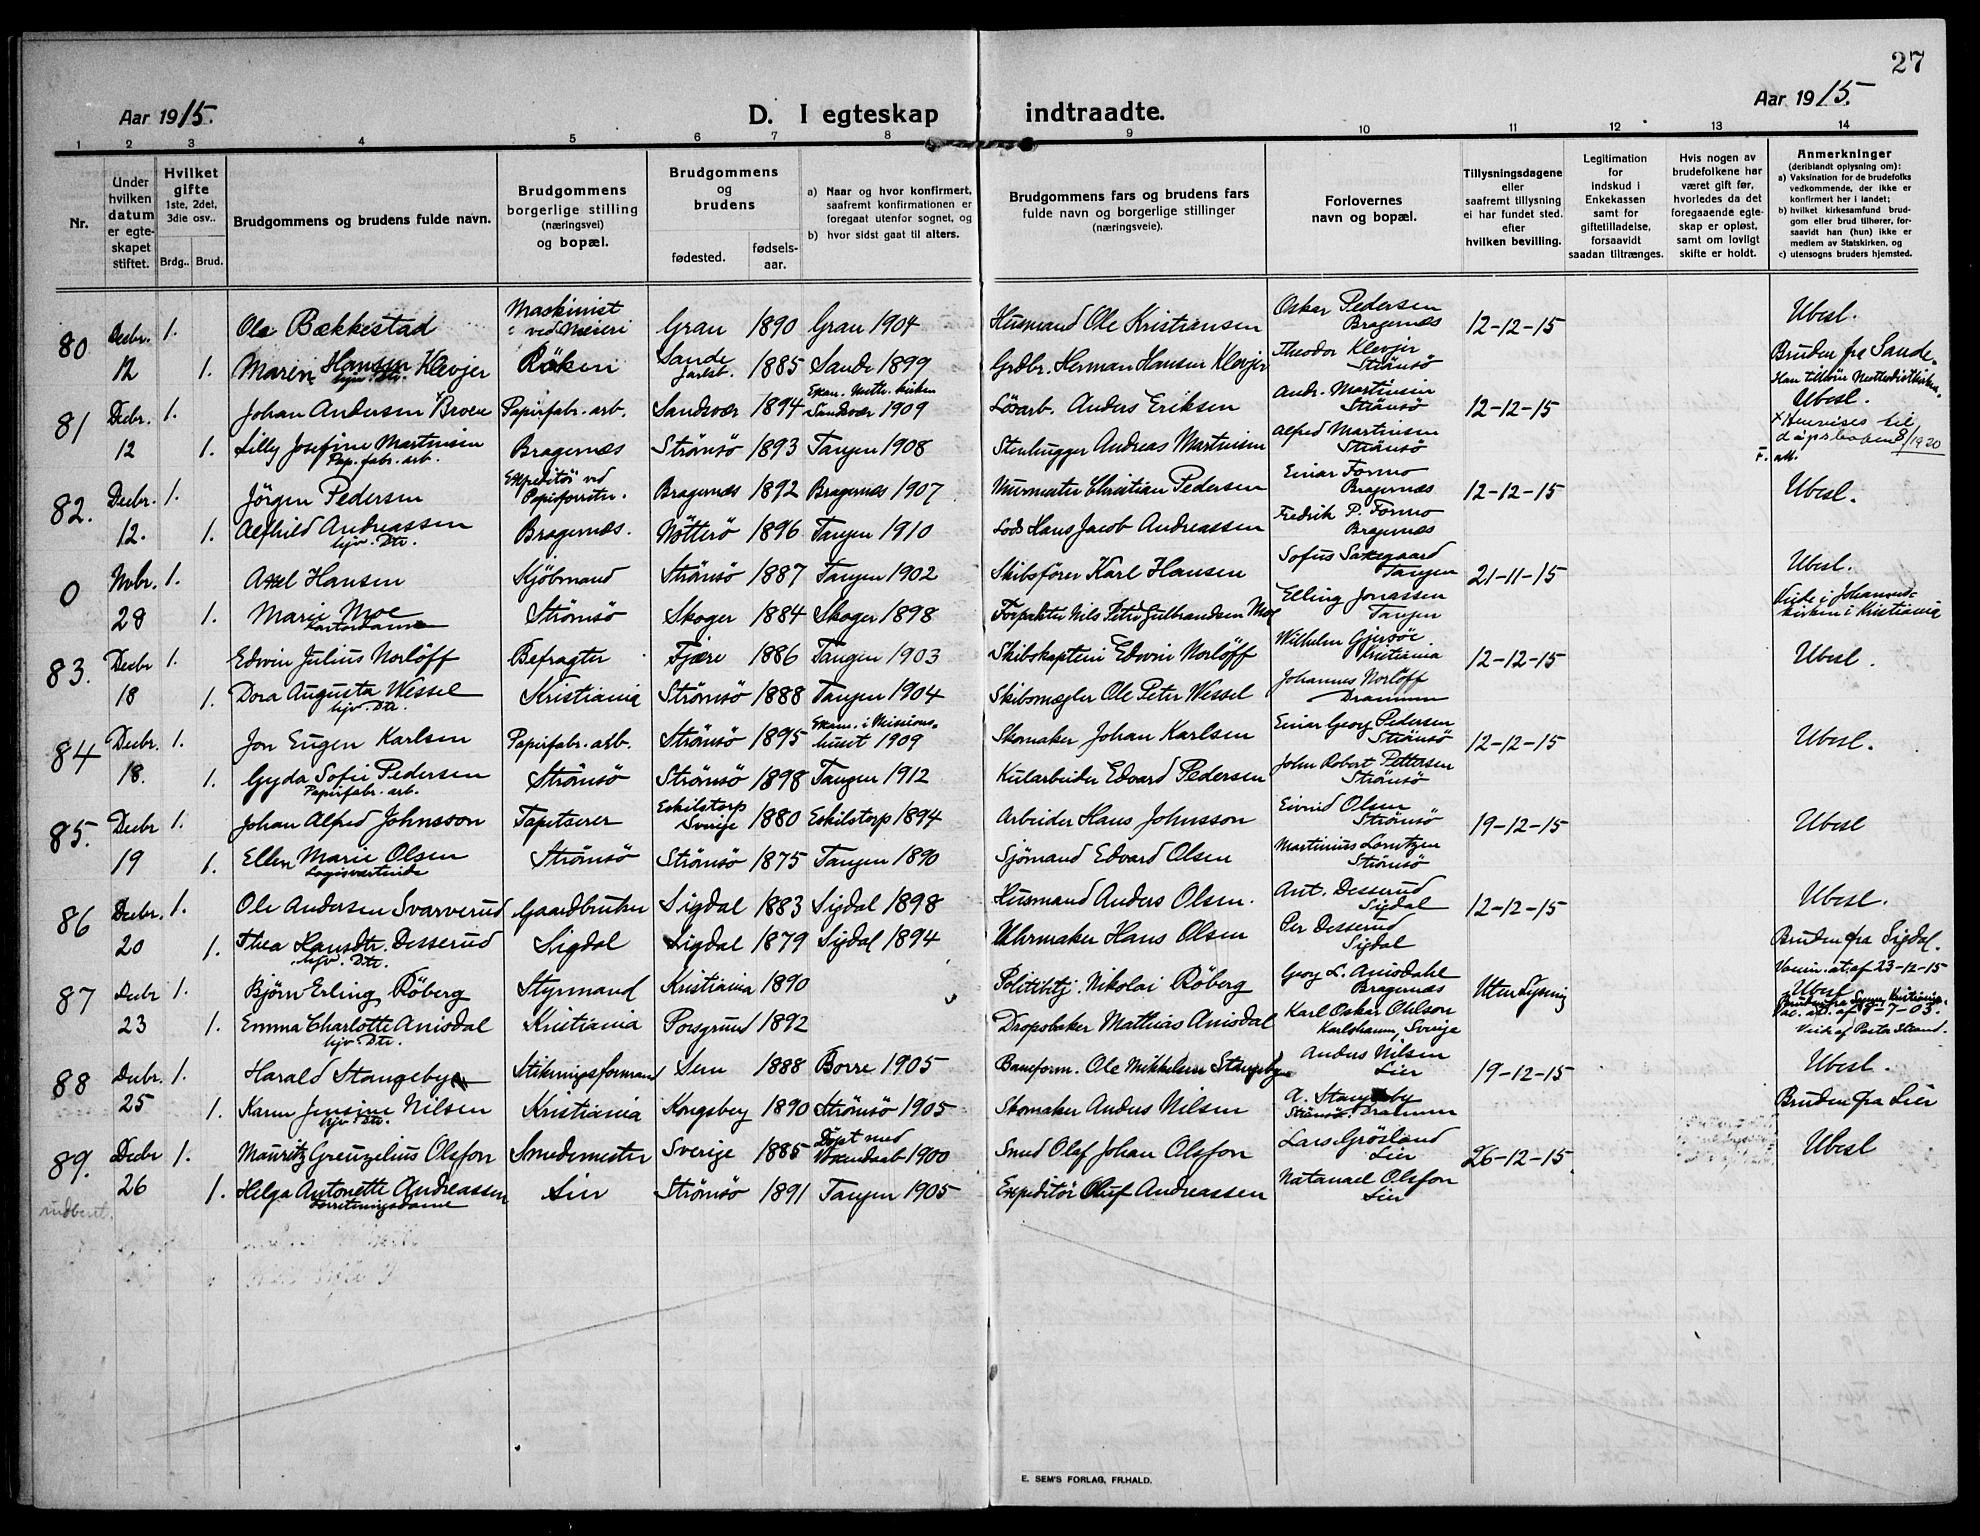 27
Aar 1915.
D. I egteskap indtraadte.
Aar 1915.
1 2 3 4 5 6 7 8 9 10 11 12 13 14
Nr.
Under hvilken datum er egte-skapet stiftet.
Hvilket gifte 1ste, 2det, 3die osv..
Brdg.. Brud.
Brudgommens og brudens fulde navn.
Brudgommens borgerlige stilling (næringsvei) og bopæl.
Brudgommens og brudens
fødested.
fødsels-aar.
a) Naar og hvor konfirmert, saafremt konfirmationen er foregaat utenfor sognet, og
b) hvor sidst gaat til alters.
Brudgommens fars og brudens fars fulde navn og borgerlige stillinger (næringsveie).
Forlovernes navn og bopæl.
Tillysningsdagene eller saafremt tillysning ei har fundet sted. efter hvilken bevilling.
Legitimation for indskud i Enkekassen samt for giftetilladelse, forsaavidt saadan tiltrænges.
Hvis nogen av brudefolkene har været gift før, hvorledes da det foregaaende egte-skap er opløst, samt om lovligt skifte er holdt.
Anmerkninger (deriblandt oplysning om):
a) Vaksination for de brudefolks vedkommende, der ikke er konfirmert her i landet;
b) hvilket kirkesamfund brud-gom eller brud tilhører, for-saavidt han (hun) ikke er medlem av Statskirken, og
c) utensogns bruders hjemsted.
80 Decbr. 1. Ole Bækkestad Maskinist ved Meieri Gran 1890 Gran 1904 Husmand Ole Kristiansen Oskar Pedersen Bragernæs 12-12-15 Ubesl.
12 1. Maren Hansen Klevjer hjv. Dtr. Röken Sande Jarlsb. 1885 Sande 1899 Grdbr. Herman Hansen Klevjer Theodor Klevjer Strömsö Bruden fra Sande.
81 Decbr. 1. Johan Andersen Broen Papirfabr. arb. Sandsvær 1894 Sandsvær 1909 Lösarb. Anders Eriksen Andr. Martinsen Strömsö 12-12-15 Han tilhörer Methodistkirken. Ubesl.
12 1. Lilly Josefine Martinsen Pap. fabr. arb. Bragernæs Strömsö 1893 Tangen 1908 Stenhugger Andreas Martinsen Alfred Martinsen Strömsö × Henvises til dåpsboken 8/1920
82. Decbr. 1. Jörgen Pedersen Expeditör ved Bragernæs 1892 Bragernæs 1907 Murmester Christian Pedersen Einar Formo Bragernæs 12-12-15 Ubesl.
12. 1. Alfhild Andreassen hjv. Dtr. Bragernæs. Nötterö 1896 Tangen 1910 Lods Hans Jacob Andreassen Fredrik P. Formo Bragernæs
0 Nvbr. 1. Axel Hansen Kjöbmand Strömsö 1887 Tangen 1902 Skibsförer Karl Hansen Sofus Tangen 21-11-15 Ubesl.
28 1. Marie Moe Kontordame Strömsö Skoger 1884 Skoger 1898 Forpakter Nils Peter Gulbrandsen Moe Elling Jonassen Tangen Viede i Johannes-kirken i Kristiania
83. Decbr 1. Edvin Julius Norlöff Befragter Fjære 1886 Tangen 1903 Skibskaptein Edvin Norlöff Wilhelm Gjersöe Kristiania 12-12-15 Ubesl.
18 1. Dora Augusta Wessel hjv. Dtr. Kristiania Strömsö 1888 Tangen 1904 Skibsmægler Ole Peter Wessel Johannes Norlöff Drammen
84 Decbr. 1. Jon Eugen Karlsen Papirfabr. arb. Strömsö 1895 Exam. i Missions-huset 1909 Skomaker Johan Karlsen Einar Georg Pedersen Strömsö 12-12-15 Ubesl.
18. 1. Gyda Sofie Pedersen Papirfabr. arb. Strömsö Strömsö 1898 Tangen 1912 Kularbeider Edvard Pedersen John Robert Pettersen Strömsö
85. Decbr 1. Johan Alfred Johnsson Tapetserer Eskilstorp Sverige 1880 Eskilstorp 1894 Arbeider Hans Johnsson Eivind Olsen Strömsö 19-12-15 Ubesl
19 1. Ellen Marie Olsen Logisvertinde Strömsö Strömsö 1875 Tangen 1890 Sjömand Edvard Olsen Martinius Lorntzen Strömsö
86 Decbr. 1. Ole Andersen Svarverud Gaardbruker Sigdal 1883 Sigdal 1898 Husmand Anders Olsen. Ant. Desserud Sigdal 12-12-15 Ubesl.
20 1. Thea Hansdtr. Desserud hjv. Dtr. Sigdal Sigdal 1879 Sigdal 1894 Uhrmaker Hans Olsen Per Desserud Sigdal Bruden fra Sigdal.
87 Decbr 1. Bjørn Erling Röberg Styrmand Kristiania 1890 Politibetj. Nikolai Röberg Georg L. Anisdahl Bragernæs Uten Lysning Vaccin. at. af 23-12-15 Ubesl
23 1. Emma Charlotte Anisdal hjv. Dtr. Kristiania Porsgrund 1892 Dropsbaker Mathias Anisdal Karl Oskar Ohlson Karlshamn, Sverige Viet af Pastor Strand.
88 Decbr. 1. Harald Stangeby Stikningsformand Sem 1888 Borre 1905 Baneform. Ole Mikkelsen Stangeby Anders Nilsen Lier 19-12-15 Ubesl.
25 1. Karen Jensine Nilsen hjv. Dtr. Kristiania Kongsberg 1890 Strömsö 1905 Skomaker Anders Nilsen A. Stangeby Strömsö. Drammen Bruden fra Lier
89. Decbr 1. Mauritz Greuzelius Olsson Smedemester Sverige 1885 1900 Smed Olof Johan Olsson Lars Grösland Lier 26-12-15 Ubesl
26 1. Helga Antonette Andreassen Forretningsdame Lier Strömsö 1891 Tangen 1905 Expeditör Oluf Andreassen Natanael Olsson Lier
indberet.
E. SEM'S FORLAG, FR.HALD.